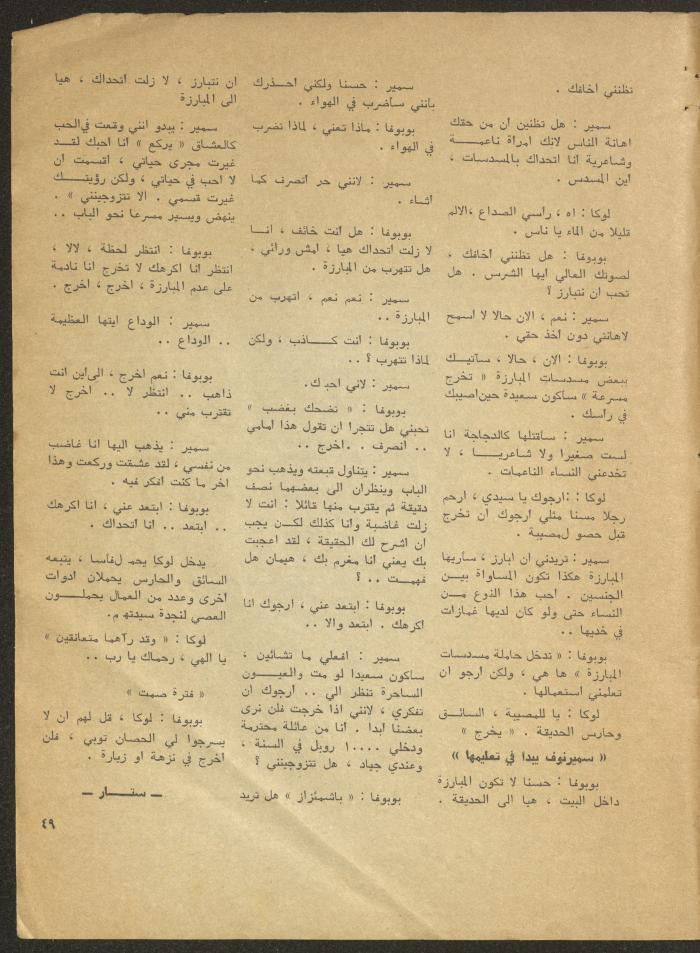 تظنني اخافك .
سمير : هل تظنين ان من حقك
اهانة الناس لانك امرأة ناعمـــة
وشاعرية انا اتحداك بالمسدسات ،
اين المسدس .
لوكا : اه ، رأسي الصداع ،الالم
قليلا من الماء يا ناس .
بوبوفا : هل تظنني اخافك ،
لصوتك العالي ايها الشرس . هل
تحب ان نتبارز ؟
سمير : نعم ، الان حالا لا اسمح
لاهانتي دون اخذ حقي .
بوبوفا : الان ، حالا ، سآتيــك
ببعض مسدسات المبارزة « تخرج
مسرعة » ساكون سعيدة حين اصيبك
في راسك .
سمير : ساقتلها كالدجاجة انا
لست صغيرا ولا شاعريــا ، لا
تخدعني النساء الناعمات .
لوكا : :ارجوك يا سيدي ، ارحم
رجلا مسنا مثلي ارجوك ان تخرج
قبل حصو لمصيبة .
سمير : تريدني ان ابارز ، ساريها
المبارزة هكذا تكون المساواة بيــن
الجنسين . احب هذا النوع مــن
النساء حتى ولو كان لديها غمازات
في خديها ..
بوبوفا : « تدخل حاملة مسدسات
المبارزة » ها هي ، ولكن ارجو ان
تعلمني استعمالها .
لوكا : يا للمصيبة ، السائــق
وحارس الحديقة . « يخرج »
« سميرنوف يبدا في تعليمها »
بوبوفا : حسنا لا تكون المبارزة
داخل البيت ، هيا الى الحديقة .
سمير : حسنا ولكني احــذرك
بانني ساضرب في الهواء .
بوبوفا : ماذا تعني ، لماذا تضرب
في الهواء .
سمير : لانني حر اتصرف كما
اشاء .
بوبوفا : هل انت خائف ، انــا
لا زلت اتحداك هيا ، امش ورائي ،
هل تتهرب من المبارزة .
سمير : نعم نعم ، اتهرب من
المبارزة ..
بوبوفا : انت كـــاذب ، ولكن
لماذا تتهرب ؟ ..
سمير : لاني احبك.
بوبوفا : « تضحك بغضب »
تحبني هل تتجرا ان تقول هذا امامي
.. انصرف . .اخرج ..
سمير : يتناول قبعته ويذهب نحو
الباب وينظران الى بعضهما نصف
دقيقة ثم يقترب منها قائلا : انت لا
زلت غاضبة وانا كذلك لكــن يجب
ان اشرح لك الحقيقة ، لقد اعجبت
بك يعني انا مغرم بك ، هيمان هل
فهمــت .. ؟
بوبوفا : ابتعد عني ، ارجوك انا
اكرهك . ابتعد والا ..
سمير : افعلي ما تشائين ،
ساكون سعيدا لو مت والعيــون
الساحرة تنظر الي .. ارجوك ان
تفكري ، لانني اذا خرجت فلن نرى
بعضنا ابدا . انا من عائلة محترمة
ودخلي ١٠٠٠٠ روبل في السنة ،
وعندي جياد ، هل تتزوجينني ؟
بوبوفا : « باشمئزاز » هل تريد
ان نتبارز ، لا زلت اتحداك ، هيا
الى المبارزة
سمير : يبدو انني وقعت في الحب
كالعشاق « يركع » انا احبك لقــد
غيرت مجرى حياتي ، اقسمت ان
لا احب في حياتي ، ولكن رؤيتــك
غيرت قسمي . الا تتزوجينني » .
ينهض ويسير مسرعا نحو الباب ..
بوبوفا : انتظر لحظة ، لالا ،
انتظر انا اكرهك لا تخرج انا نادمة
على عدم المبارزة ، اخرج ، اخرج .
سمير : الوداع ايتها العظيمة
.. الوداع ..
بوبوفا : نعم اخرج ، الى اين انت
ذاهب .. انتظر لا .. اخرج لا
تقترب مني ..
سمير : يذهب اليها انا غاضب
من نفسي ، لقد عشقت وركعت وهذا
اخر ما كنت افكر فيه .
بوبوفا : ابتعد عني ، انا اكرهك
.. ابتعد .. انا اتحداك .
يدخل لوكا يحمـ لفأسا ، يتبعه
السائق والحارس يحملان ادوات
اخرى وعدد من العمال يحملــون
العصي لنجدة سيدتهم.
لوكا : « وقد رآهما متعانقين »
يا الهي ، رحماك يا رب ..
« فترة صمت »
بوبوفا : لوكا ، قل لهم ان لا
يسرجوا لي الحصان توبي ، فلن
اخرج في نزهة او زيارة .
— ستـــار —
٤٩